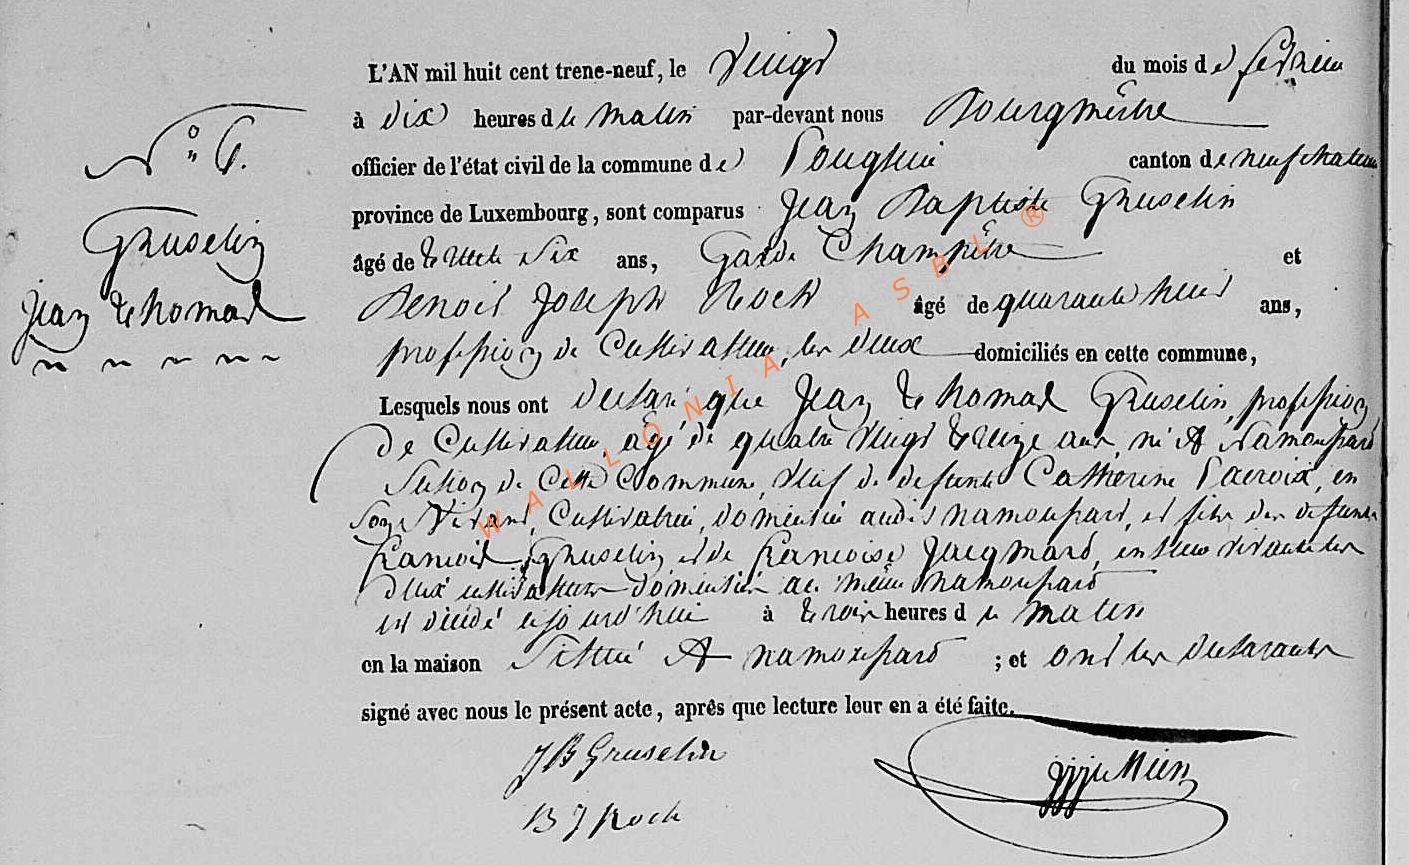 L'AN mil huit cent trene-neuf, le Vingt du mois de fevrier
à dix heures du matin par-devant nous Bourgmestre
officier de l'état civil de la commune de canton de neufchateau
province de Luxembourg, sont comparus Jean Baptiste Gruselin
âgé de trente Six ans, Garde Champêtre et
Benoit Joseph Roch âgé de quarante huit ans,
profession de Cultivateur, les deux domiciliés en cette commune,
Lesquels nous ont declaré que Jean Thomas Gruselin, profession
de Cultivateur, agé de quatre Vingt treize ans, né A Namoussart
Section de Cette Commune, Veuf de defunte Catherine Lacroix, en
Son Vivant, Cultivatrice, domiciliée audit namoussart, et fils des defunts
francois Gruselin et de francoise Jacqmard, en leur vivant les
deux cultivateurs domiciliés au même namoussart
est décédé cejourd'hui à trois heures du matin
en la maison Située A namoussart ; et ont les declarants
signé avec nous le présent acte, après que lecture leur en a été faite.
JB Gruselin
B J Roch
N° 6.
Gruselin
Jean thomas
WALLONIA ASBL ®